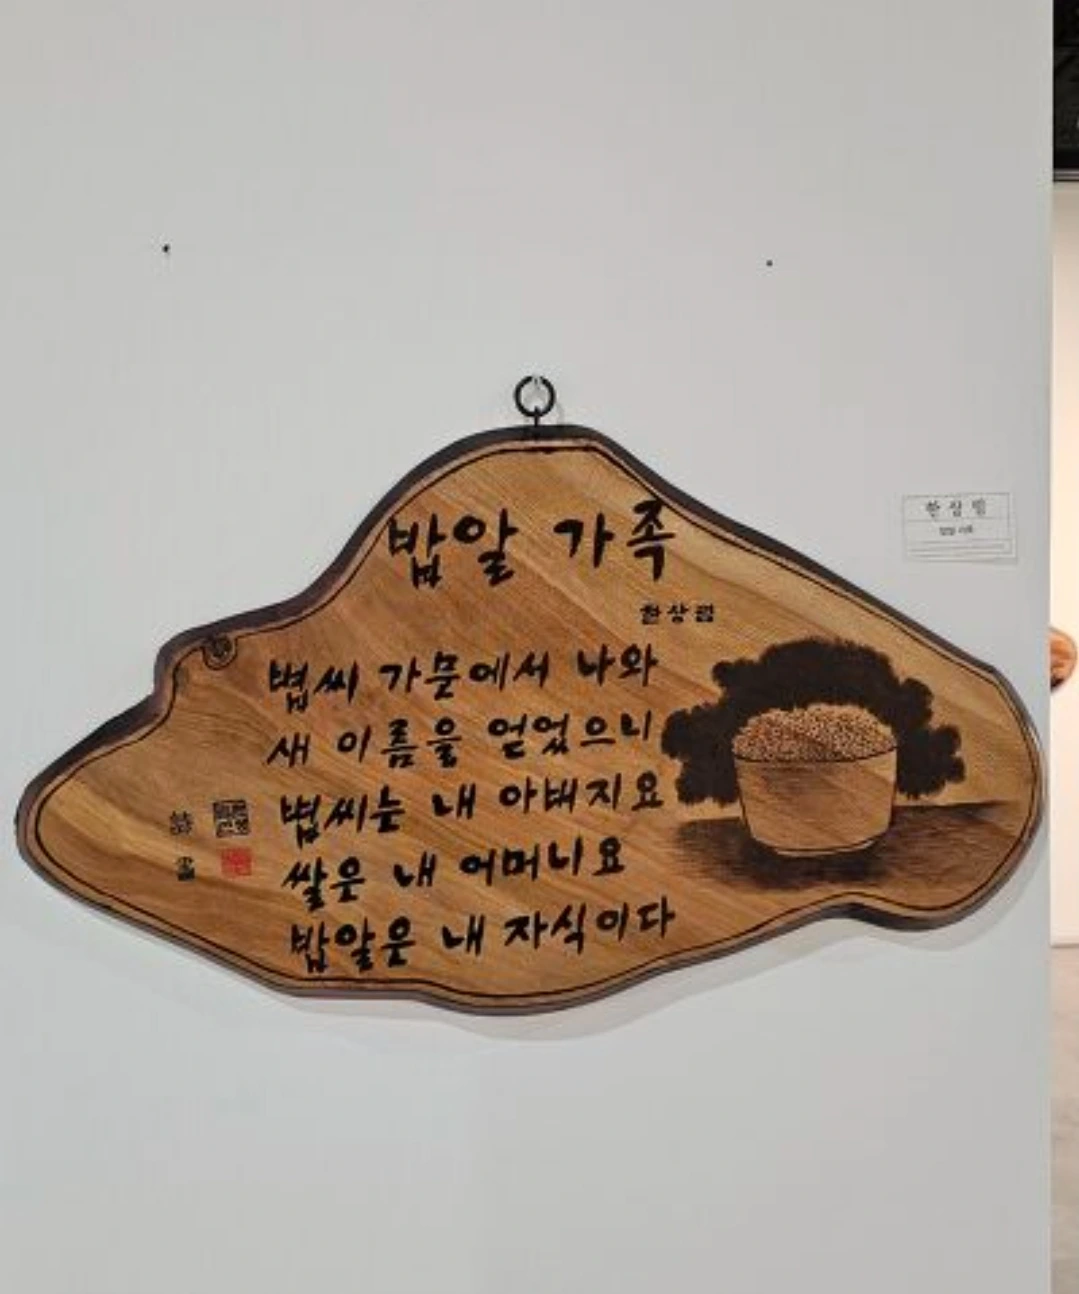 밥알 가족
한상렴
볍씨 가문에서 나와
새 이름을 얻었으니
볍씨는 내 아버지요
쌀은 내 어머니요
밥알은 내 자식이다
한상렴
밥알 가족